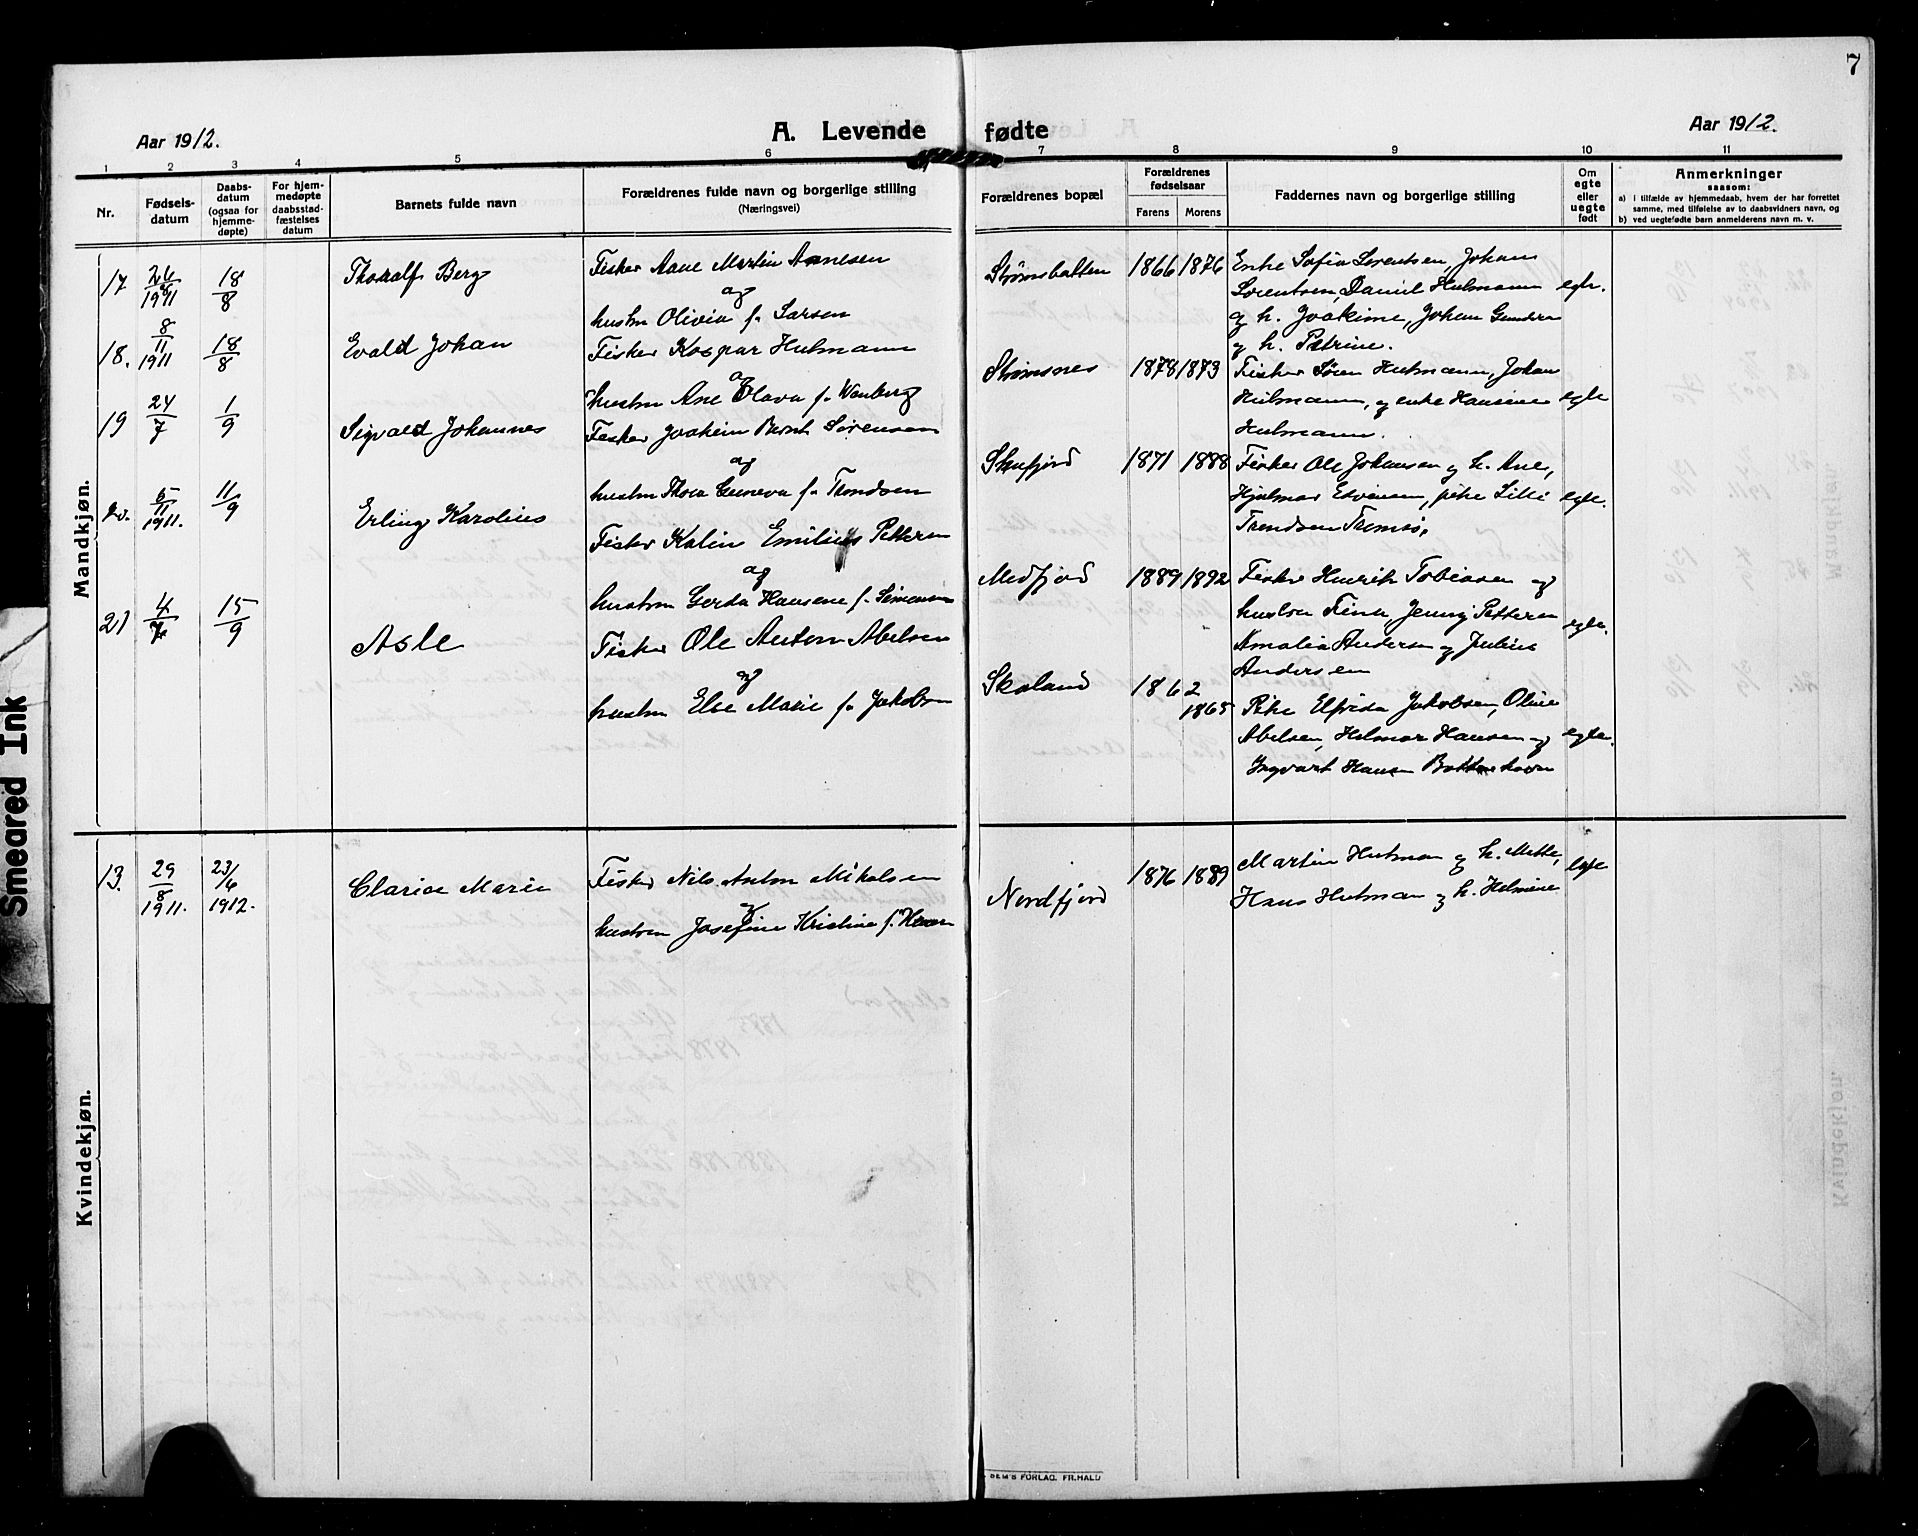 7
Aar 1912.
A. Levende fødte
Aar 1912.
1 2 3 4 5 6 7 8 9 10 11
Nr.
Fødsels-
datum
Daabs-
datum
(ogsaa for
hjemme-
døpte)
For hjem-
medøpte
daabsstad-
fæstelses
datum
Barnets fulde navn
Forældrenes fulde navn og borgerlige stilling
(Næringsvei)
Forældrenes bopæl
Forældrenes
fødselsaar
Farens Morens
Faddernes navn og borgerlige stilling
Om
egte
eller
uegte
født
Anmerkninger
saasom:
a) i tilfælde av hjemmedaab, hvem der har forrettet
samme, med tilføielse av to daabsvidners navn, og
b) ved uegtefødte barn anmelderens navn m. v.
Mandkjøn.
17 1911 18/8 Thoralf Berg
Fisker Aane Martin Arnesen
og
hustru Olivia f. Larsen
Strømsbotten 1866 1876
Enke Sofia Lorentsen, Johan
Lorentsen, Daniel Hulmann
og h. Joakime, Johan
og h. Petrine.
egte.
18. 8/11 1911 18/8 Evald Johan
Fisker Kaspar Hulmann
og
hustru Ane Olava f. Wanberg
Strømsnes 1878 1873
Fisker Søren Hulmann, Johan
Hulmann, og enke Hansine
Hulmann.
egte
19 24/7 1/9 Sigvald Johannes
Fisker Joakim Bernt Sørensen
og
hustru Thora f. Trondsen
1871 1888
Fisker Ole Johansen og h. Ane,
Hjalmar pike Lilli
Trondsen Tromsø.
egte.
20. 5/11 1911. 11/9 Erling Karolius
Fisker Kolin Emilius Pettersen
og
hustru Gerda Hansene f. Simonsen
Medfjord 1889 1892
Fisker Henrik Tobiasen og
hustru Fina, Jenny Pettersen
Amalia Andersen og Julius
Andersen
egte.
21 4/7 15/9 Asle
Fisker Ole Anton Abelsen
og
hustru Else Marie f. Jakobsen
Skaland 1862
1865
Pike Elfrida Jakobsen, Oline
Abelsen, Helmar Hansen og
Ingvart Hansen
egte.
Kvindekjøn.
13. 29/8 1911. 23/6 1912. Clarice Marie
Fisker Nils Anton Mikalsen
og
hustru Josefine Kristine f.
Nordfjord 1876 1889
Martin Hulman og h. Mette,
Hans Hulman og h. Helmine
egte
SEM'S FORLAG. FR.HALD
Smeared Ink